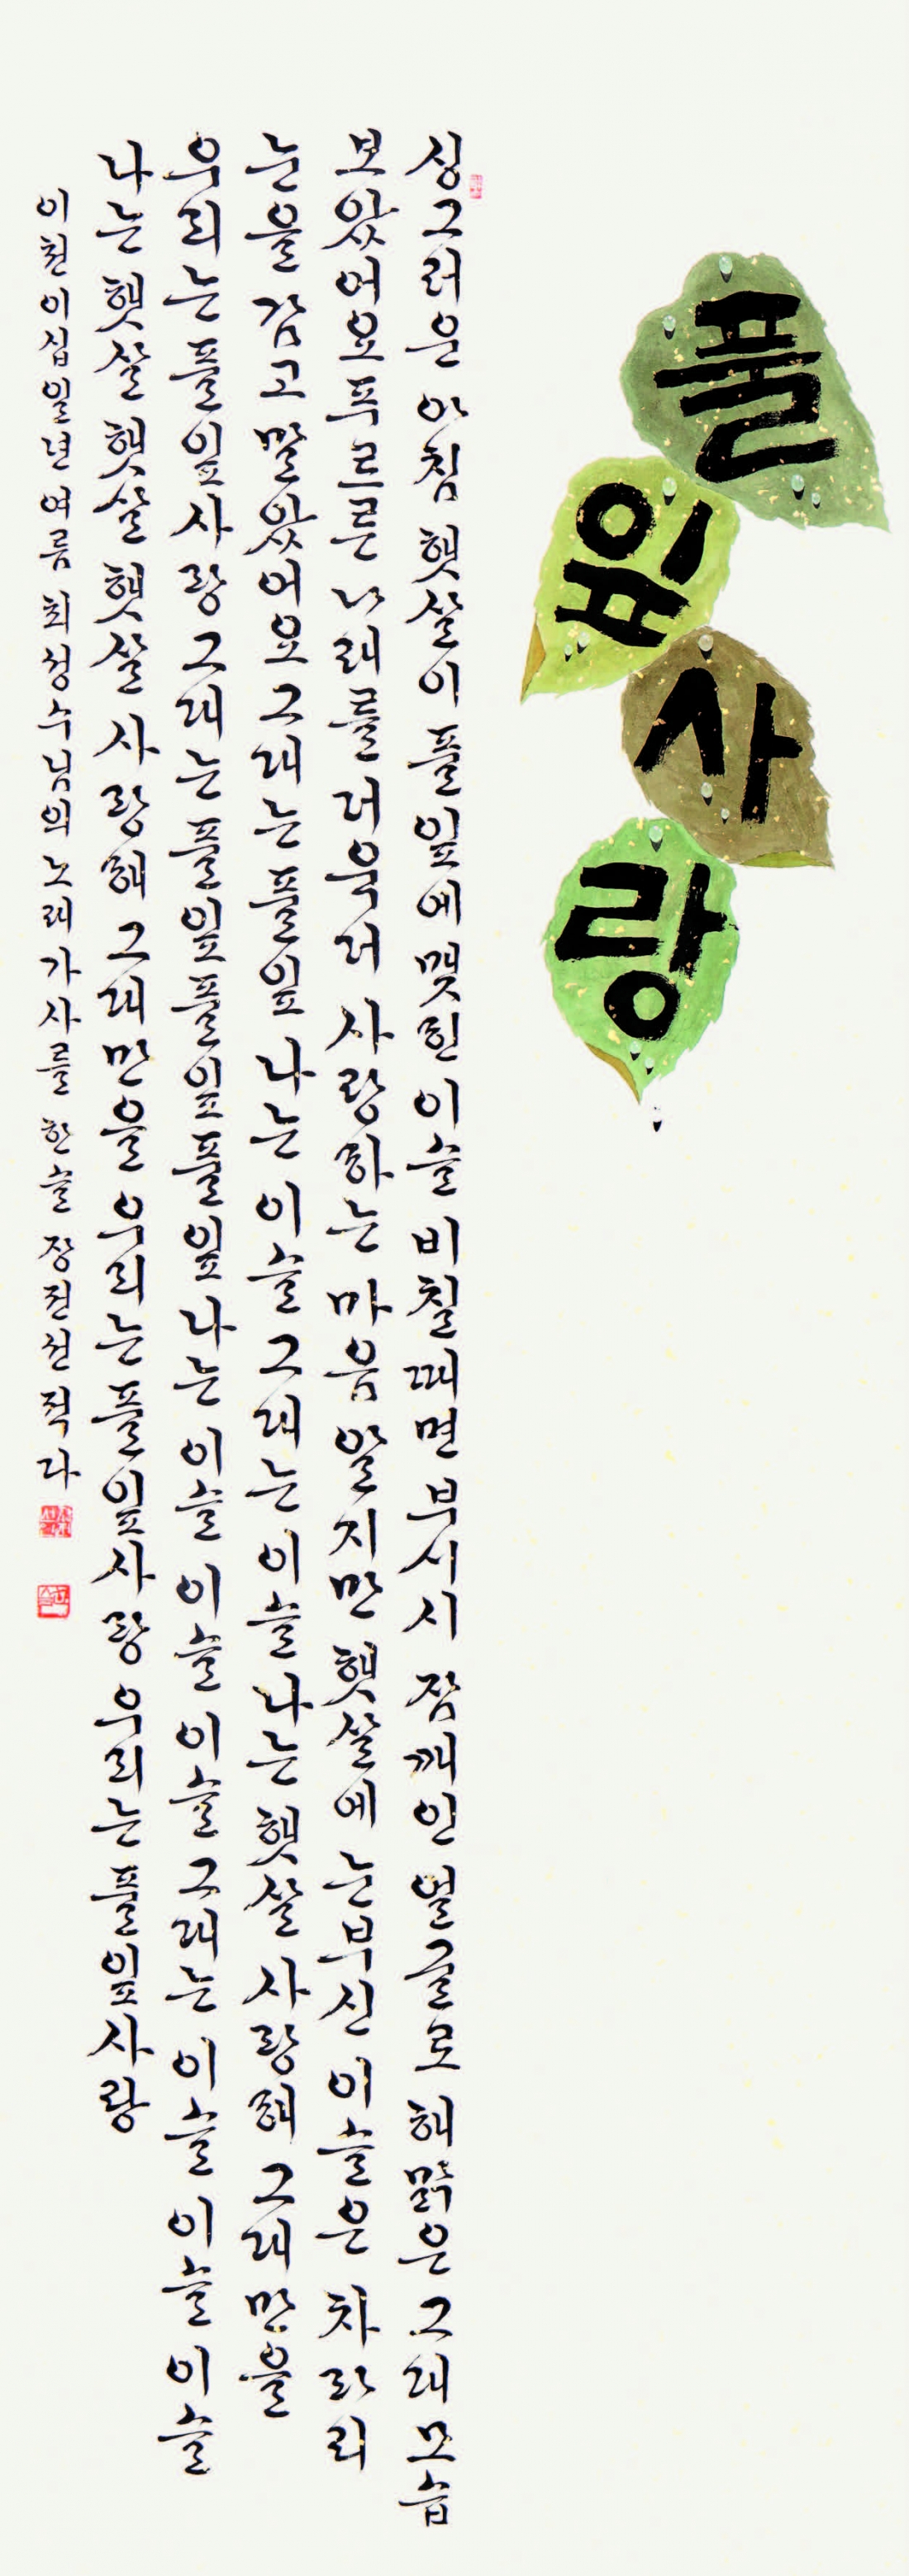 풀잎사랑
싱그러운 아침 햇살이 풀잎에 맺힌 이슬 비칠 때면 부시시 잠깨인 얼굴로 해맑은 그대 모습
보았어요 푸르른 나래를 더욱더 사랑하는 마음 알지만 햇살에 눈부신 이슬은 차라리
눈을 감고 말았어요 그대는 풀잎 나는 이슬 그대는 이슬 나는 햇살 사랑해 그대만을
우리는 풀잎사랑 그대는 풀잎 풀잎 풀잎 나는 이슬 이슬 이슬 그대는 이슬 이슬 이슬
나는 햇살 햇살 햇살 사랑해 그대만을 우리는 풀잎사랑 우리는 풀잎사랑
이천이십일년 여름 최성수님의 노래가사를 한슬 장전선 적다